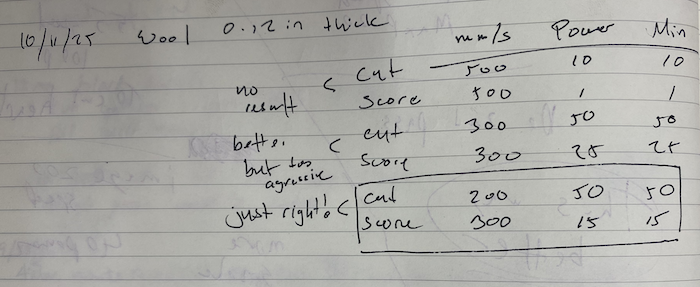 10/11/25 Wool 0.12 in thick
mm/s Power Min
cut 500 10 10
no result < score 500 1 1
better but too agrussive < cut 300 50 50
score 300 25 25
just right! < cut 200 50 50
score 300 15 15